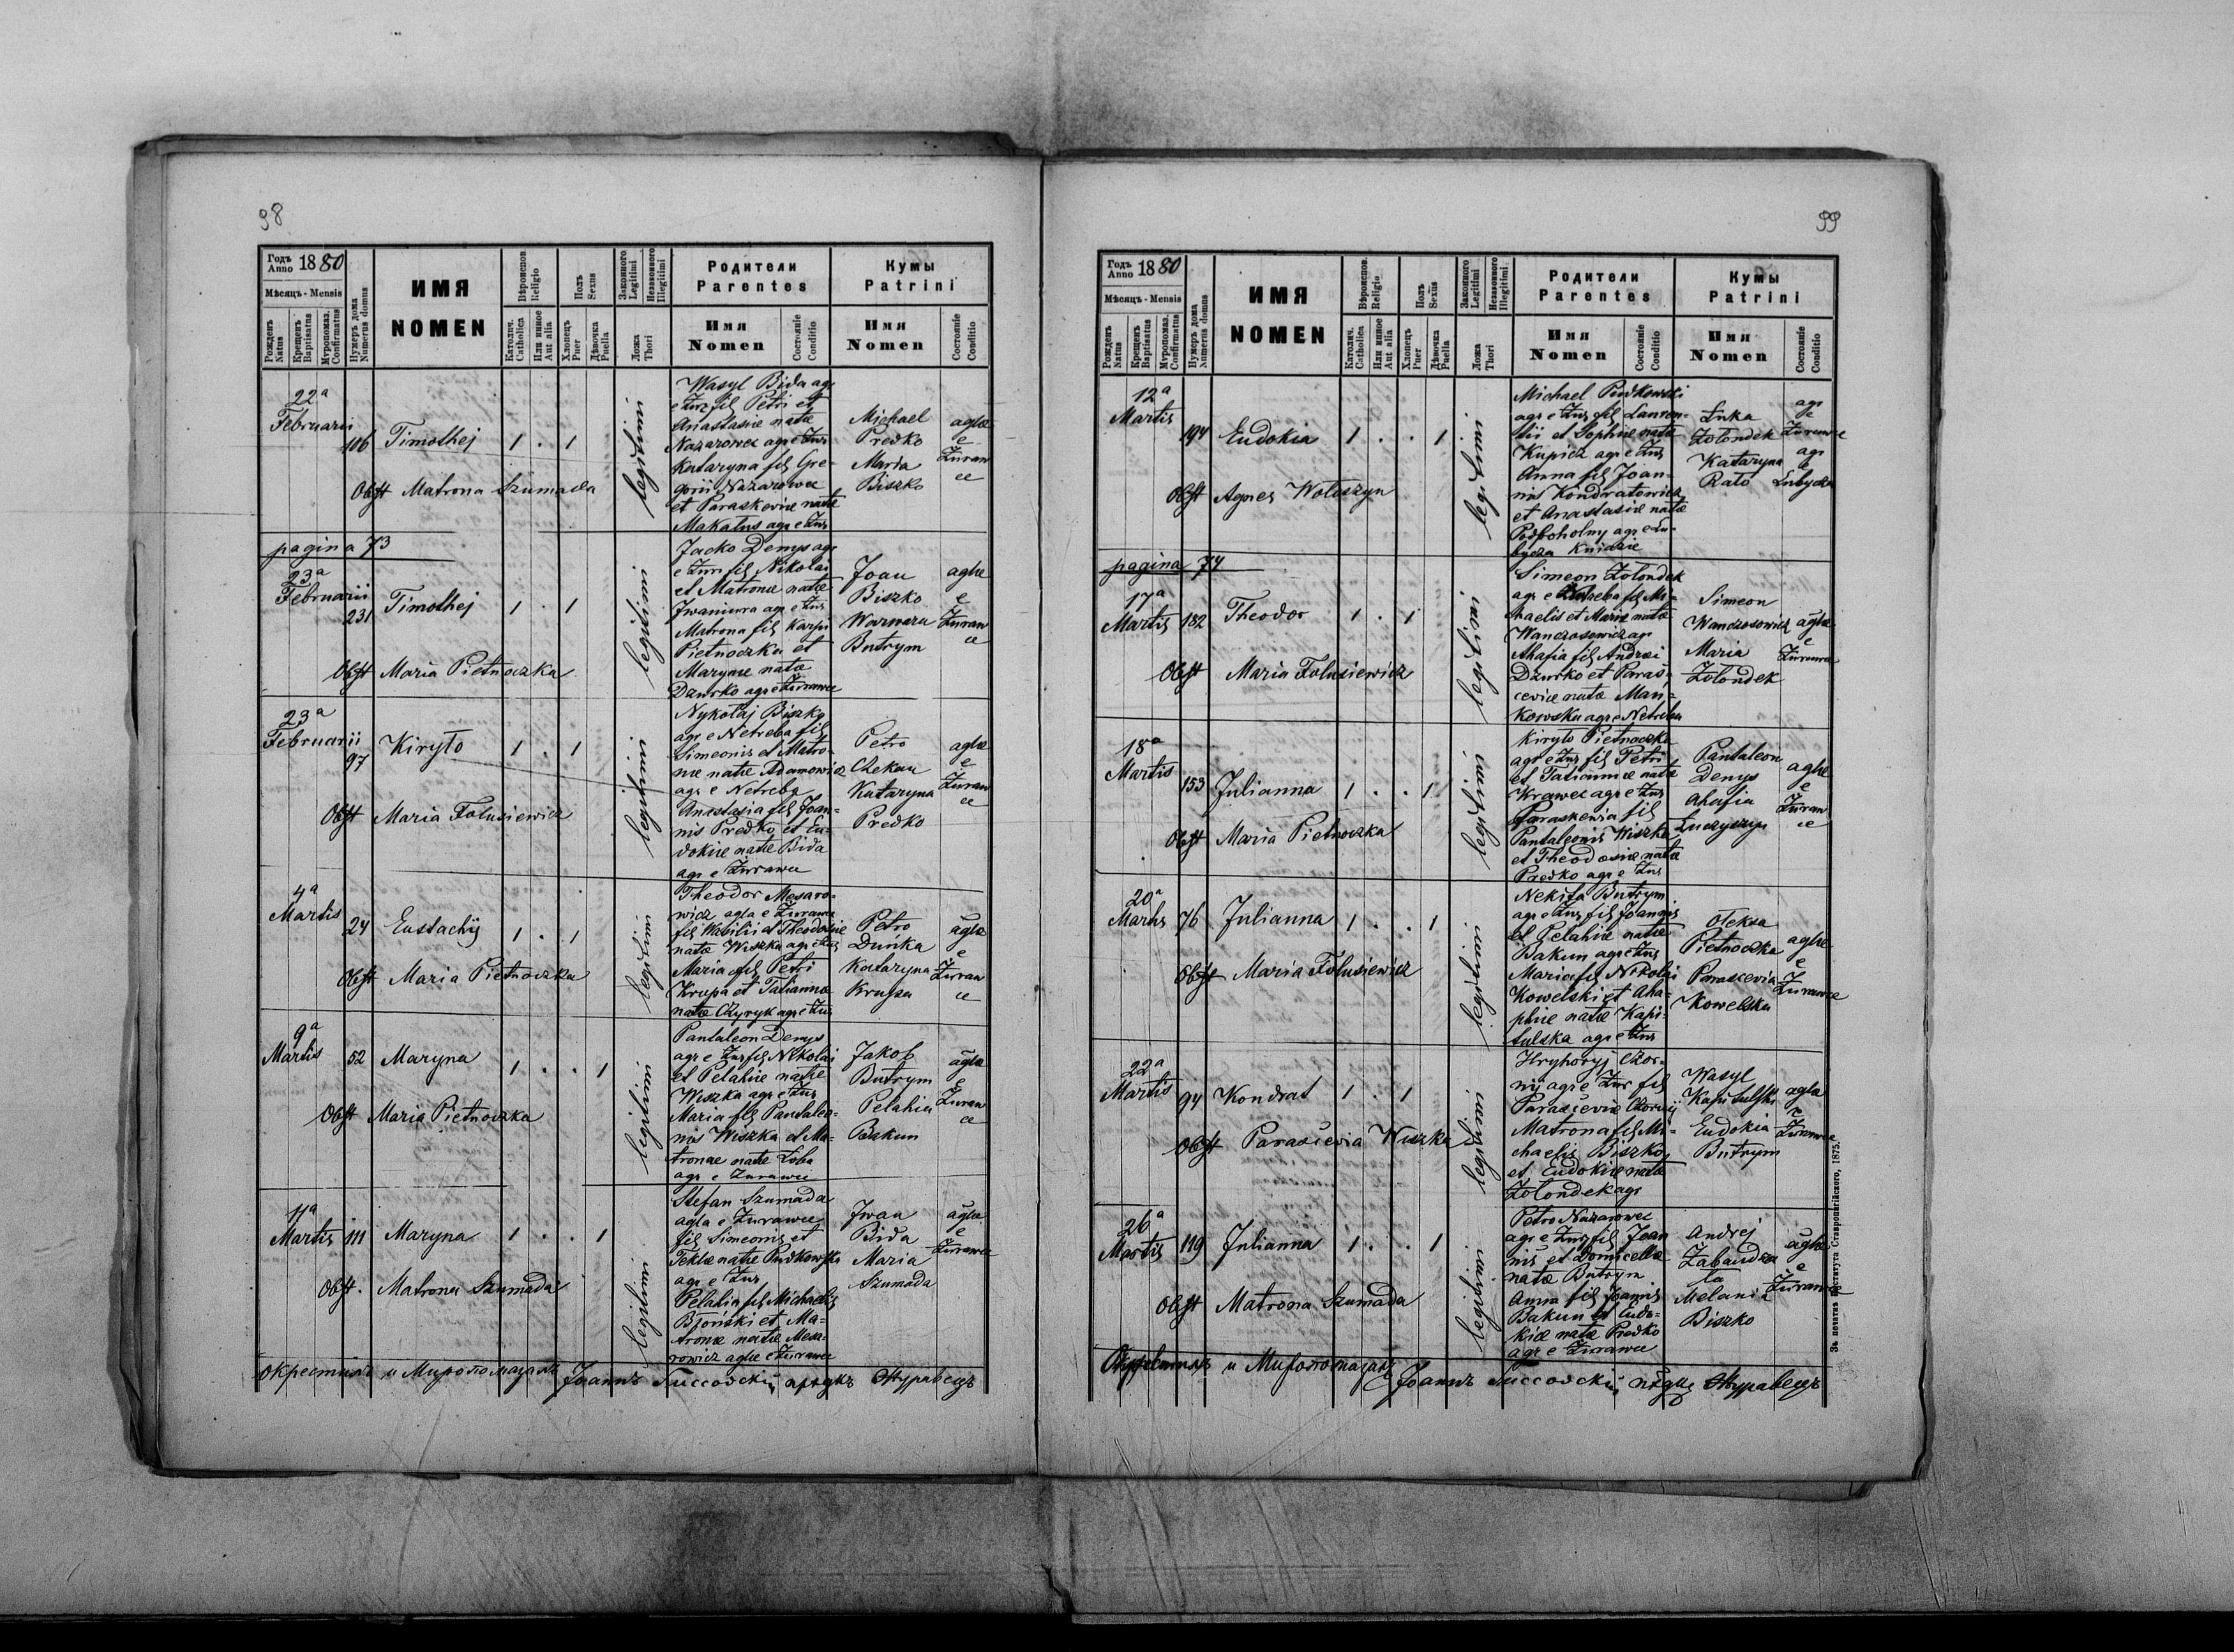 98
Годъ Anno 1880
Мѣсяцъ - Mensis
Рожденъ Natus
Крещенъ Baptisatus
Мѵропомаз. Confirmatus
Нумеръ дома Numerus domus
ИМЯ
NOMEN
Вѣроисповѣд. Religio
Католич. Catholica
Или инное Aut alia
Полъ Sexus
Хлопецъ Puer
Дѣвочка Puella
Законного Legitimi
Незаконного Illegitimi
Ложа Thori
Родители
Parentes
Имя
Nomen
Состояніе Conditio
Кумы
Patrini
Имя
Nomen
Состояніе Conditio
22ª
Februarii
106
Timothej
1 . 1
legitimi
Obst Matrona Szumada
Wasyl Bida agr
e Zur fil Petri et
Anastasiæ natæ
Nazarowec agr e Zur
Kataryna fil Gre-
gorii Nazarowec
et Paraskeviæ natæ
Makatus agr e Zur
Michael
Predko
Maria
Biszko
aglæ
e
Zuraw
ce
pagina 73
23ª
Februarii
231
Timothej
1 . 1
legitimi
Obst Maria Pietnoczka
Jacko Denys agr
e Zur fil Nikolai
et Matronæ natæ
Iwaniura agr e Zur
Matrona fil Karpi
Pietnoczka et
Marynæ natæ
Dzurko agr e Zurawce
Joan
Biszko
Warwara
Butrym
aglæ
e
Zuraw
ce
23ª
Februarii
97
Kiryło
1 . 1
legitimi
Obst Maria Folusiewicz
Nykołaj Biszko
agr e Netreba fil
Simeonis et Matro-
næ natæ Adamowicz
agr e Netreba
Anastasia fil Joan-
nis Predko et Eu-
dokiæ natæ Bida
agr e Zurawce
Petro
Czekan
Kataryna
Predko
aglæ
e
Zuraw
ce
4ª
Martis
24
Eustachij
1 . 1
legitimi
Obst Maria Pietnoczka
Theodor Mesaro-
wicz agla e Zurawce
fil Wasilii et Theodosiæ
natæ Wiszka agr e Zur
Maria fil Petri
Krupa et Tatiannæ
natæ Czyryk agr e Zur
Petro
Duńka
Kataryna
Krupa
aglæ
e
Zuraw
ce
9ª
Martis
52
Maryna
1 . . 1
legitimi
Obst Maria Pietnoczka
Pantaleon Denys
agr e Zur fil Nikolai
et Pelahiæ natæ
Wiszka agr e Zur
Maria fil Pantaleo-
nis Wiszka et Ma-
tronae natæ Zoba
agr e Zurawce
Jakob
Butrym
Pelahia
Bakun
aglæ
e
Zuraw
ce
11ª
Martis
111
Maryna
1 . . 1
legitimi
Obst. Matrona Szumada
Stefan Szumada
agla e Zurawce
fil Simeonis et
Teklæ natæ Pudkowska
agr e Zur
Pelahia fil Michaelis
Bjoński et Ma-
tronæ natæ Mesa-
rowicz aglæ e Zurawce
Iwan
Bida
Maria
Szumada
aglæ
e
Zurawce
Окрестилъ и Миропомазалъ Іоаннъ
99
Годъ Anno 1880
Мѣсяцъ - Mensis
Рожденъ Natus
Крещенъ Baptisatus
Мѵропомаз. Confirmatus
Нумеръ дома Numerus domus
ИМЯ
NOMEN
Вѣроисповѣд. Religio
Католич. Catholica
Или инное Aut alia
Полъ Sexus
Хлопецъ Puer
Дѣвочка Puella
Законного Legitimi
Незаконного Illegitimi
Ложа Thori
Родители
Parentes
Имя
Nomen
Состояніе Conditio
Кумы
Patrini
Имя
Nomen
Состояніе Conditio
12ª
Martis
194
Eudokia
1 . . 1
legitimi
Obst Agnes Wołoszyn
Michael Pudkowski
agr e Zur fil Lauren-
tii et Sophiæ natæ
Kupicz agr e Zur
Anna fil Joan-
nis Kondratowicz
et Anastasiæ natæ
Podboholny agr e Lu-
bycza Kniazie
Luka
Zolondek
Kataryna
Rato
agr
e
Zurawce
agr
e
Lubycza
pagina 74
17ª
Martis
182
Theodor
1 . 1
legitimi
Obst Maria Folusiewicz
Simeon Zolondek
agr e Netreba fil Mi-
chaelis et Mariæ natæ
Wanczosowicz agr
Ahafia fil Andrei
Dzurko et Paras-
ceviæ natæ Man-
kowska agr e Netreba
Simeon
Wanczosowicz
Maria
Zolondek
aglæ
e
Zurawce
18ª
Martis
153
Julianna
1 . . 1
legitimi
Obst Maria Pietnoczka
Kiryło Pietnoczka
agr e Zur fil Petri
et Tatiannæ natæ
Krawec agr e Zur
Paraskevia fil
Pantaleonis Wiszka
et Theodosiæ natæ
Predko agr e Zur
Pantaleon
Denys
Ahafia
Łuczyszyn
aglæ
e
Zuraw
ce
20ª
Martis
76
Julianna
1 . . 1
legitimi
Obst Maria Folusiewicz
Nekita Butrym
agr e Zur fil Joannis
et Pelahiæ natæ
Bakun agr e Zur
Maria fil Nikolai
Kowelski et Aha-
phiæ natæ Kapi-
tulska agr e Zur
Oleksa
Pietnoczka
Parascevia
Kowelska
aglæ
e
Zurawce
22ª
Martis
94
Kondrat
1 . 1
legitimi
Obst Parascevia Wiszka
Hryhoryj Czor-
nij agr e Zur fil
Parasceviæ Czornij
Matrona fil Mi-
chaelis Biszko
et Eudokiæ natæ
Zolondek agr
Wasyl
Kapitulski
Eudokia
Butrym
aglæ
e
Zurawce
26ª
Martis
119
Julianna
1 . . 1
legitimi
Obst Matrona Szumada
Petro Nazarowec
agr e Zur fil Joan
nis et Domicellæ
natæ Butrym
Anna fil Joannis
Bakun et Eudo-
kiæ natæ Predko
agr e Zurawce
Andrej
Melania
Biszko
aglæ
e
Zurawce
Окрестилъ и Миропомазалъ Іоаннъ
Зъ печатнѣ Института Ставропигійского, 1875.